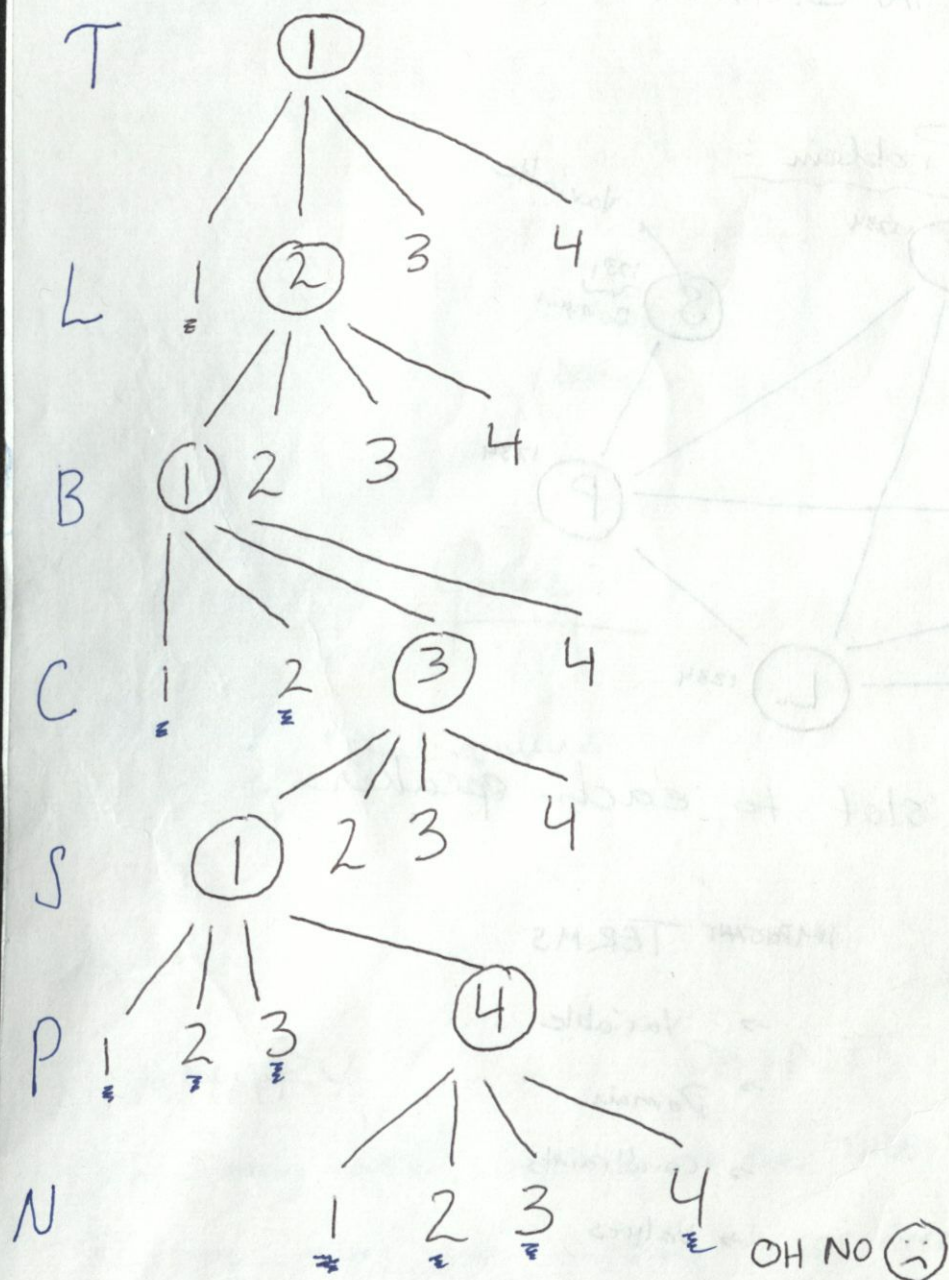 T 1
L 1 2 3 4
B 1 2 3 4
C 1 2 3 4
S 1 2 3 4
P 1 2 3 4
N 1 2 3 4
OH NO